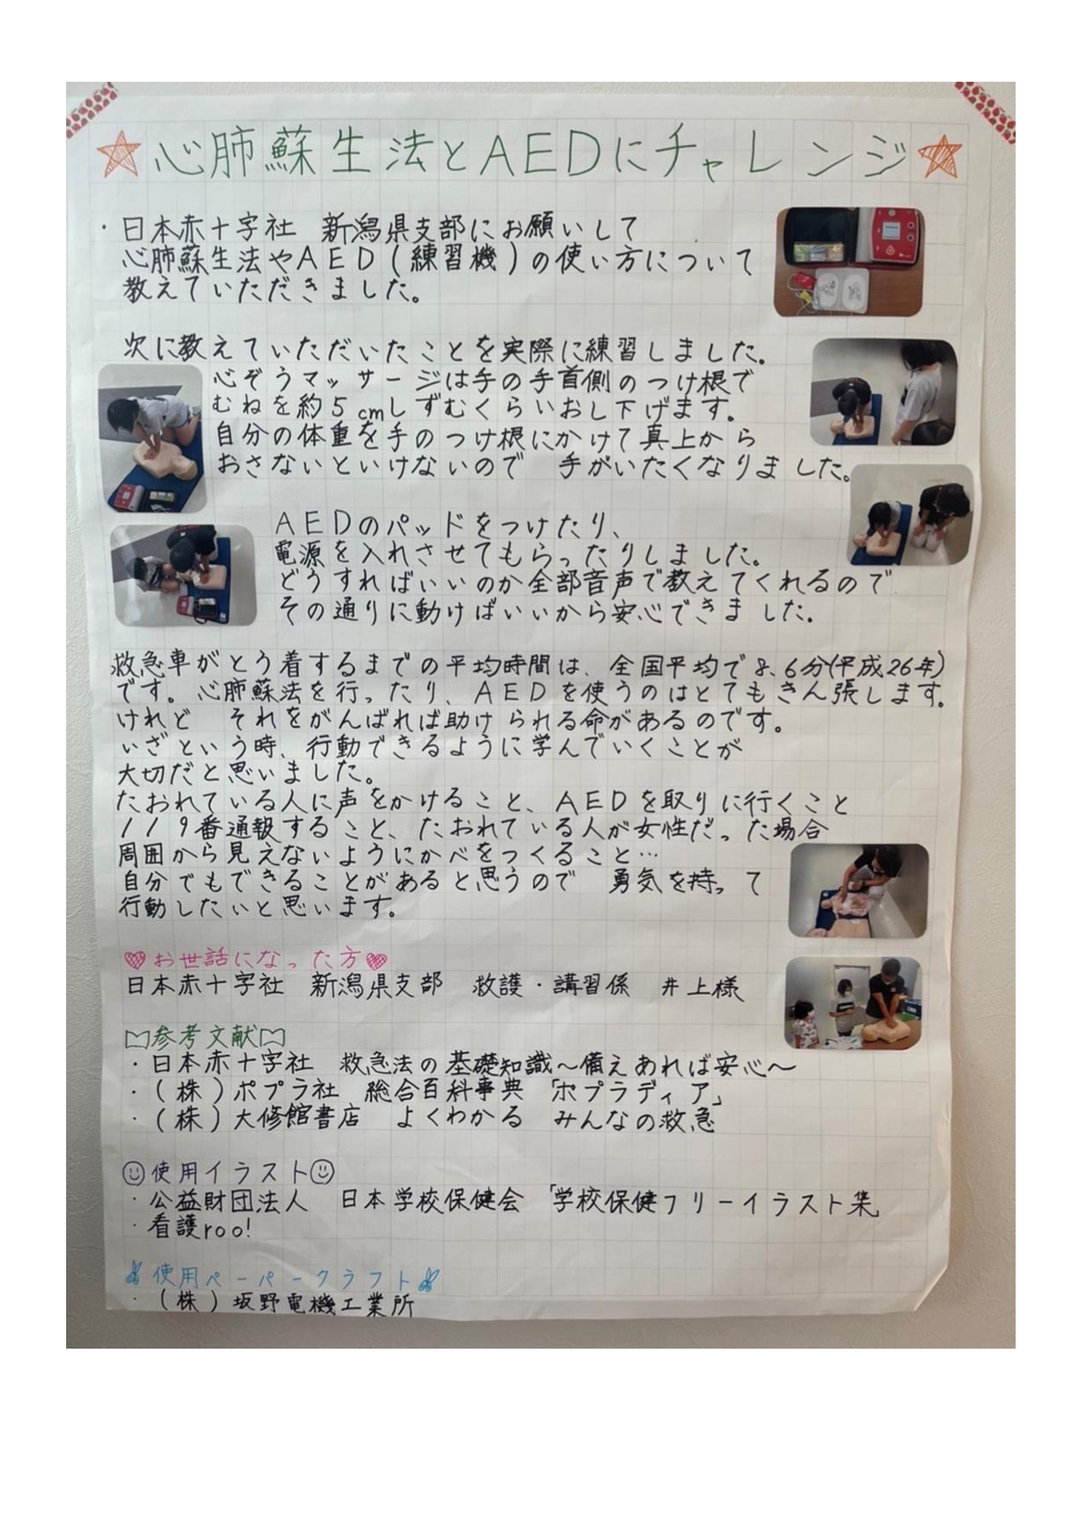 ☆心肺蘇生法とAEDにチャレンジ☆
・日本赤十字社 新潟県支部にお願いして
心肺蘇生法やAED(練習機)の使い方について
教えていただきました。
次に教えていただいたことを実際に練習しました。
心ぞうマッサージは手の手首側のつけ根で
むねを約5cmしずむくらいおし下げます。
自分の体重を手のつけ根にかけて真上から
おさないといけないので 手がいたくなりました。
AEDのパッドをつけたり、
電源を入れさせてもらったりしました。
どうすればいいのか全部音声で教えてくれるので
その通りに動けばいいから安心できました。
救急車がとう着するまでの平均時間は、全国平均で8.6分(平成26年)
です。心肺蘇法を行ったり、AEDを使うのはとてもきん張します。
けれど それをがんばれば助けられる命があるのです。
いざという時、行動できるように学んでいくことが
大切だと思いました。
たおれている人に声をかけること、AEDを取りに行くこと
119番通報すること、たおれている人が女性だった場合
周囲から見えないようにかべをつくること…
自分でもできることがあると思うので 勇気を持って
行動したいと思います。
♡お世話になった方♡
日本赤十字社 新潟県支部 救護・講習係 井上様
参考文献
・日本赤十字社 救急法の基礎知識～備えあれば安心～
・(株)ポプラ社 総合百科事典「ポプラディア」
・(株)大修館書店 よくわかる みんなの救急
☺使用イラスト☺
・公益財団法人 日本学校保健会「学校保健フリーイラスト集」
・看護roo!
使用ペーパークラフト
・(株)坂野電機工業所